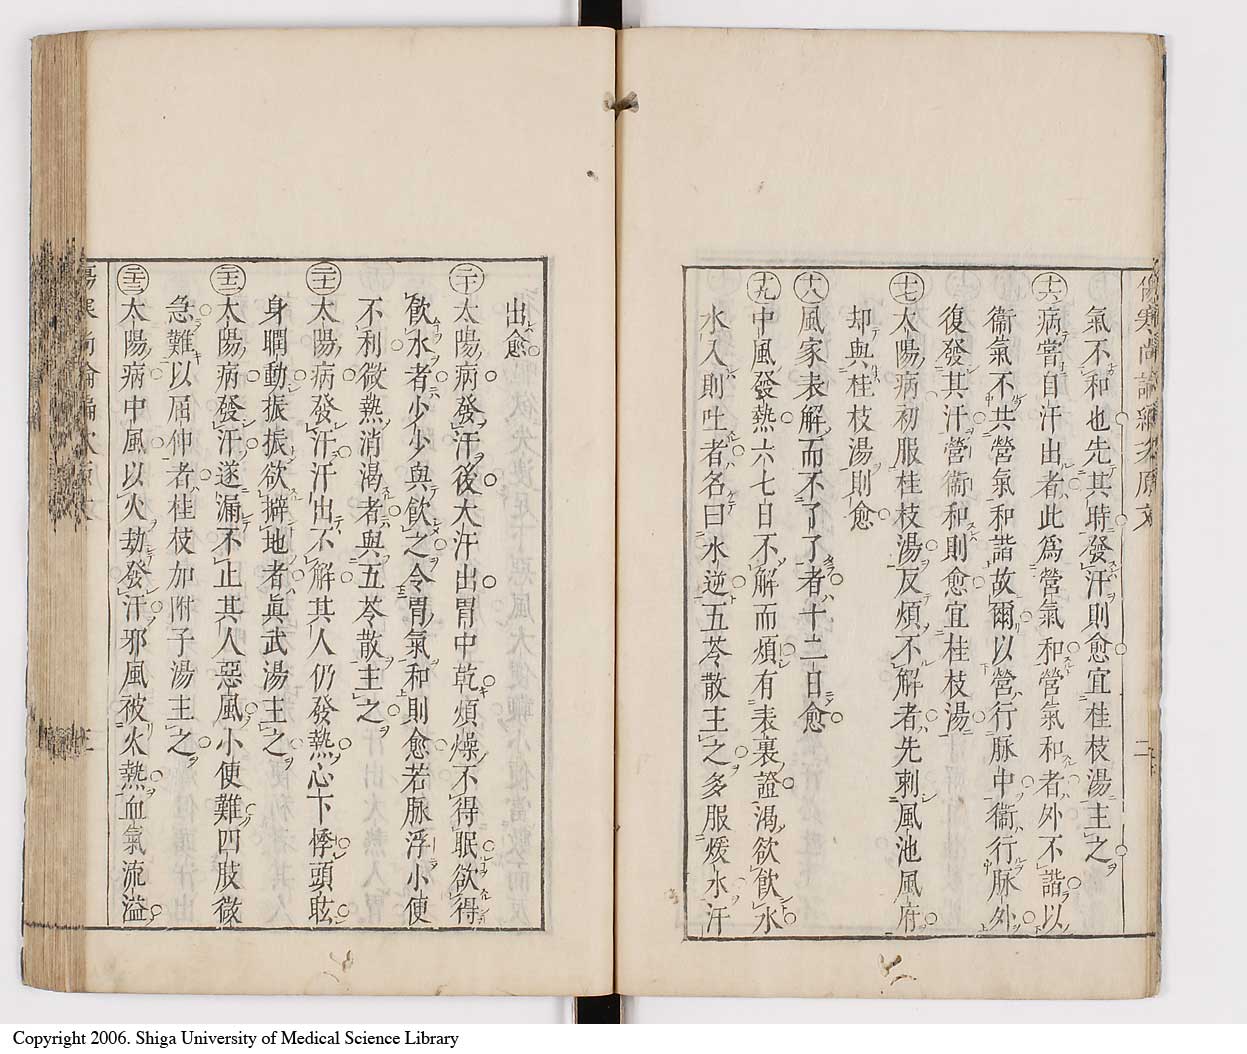 傷寒尚論編次原文 二
氣不和也先其時發汗則愈宜桂枝湯主之
十六 病常自汗出者此爲營氣和營氣和者外不諧以
衞氣不共營氣和諧故爾以營行脉中衞行脉外
復發其汗營衞和則愈宜桂枝湯
十七 太陽病初服桂枝湯反煩不解者先刺風池風府
却與桂枝湯則愈
十八 風家表解而不了了者十二日愈
十九 中風發熱六七日不解而煩有表裏證渴欲飮水
水入則吐者名曰水逆五苓散主之多服煖水汗
出愈
二十 太陽病發汗後大汗出胃中乾煩燥不得眠欲得
飮水者少少與飮之令胃氣和則愈若脉浮小便
不利微熱消渴者與五苓散主之
二十一 太陽病發汗汗出不解其人仍發熱心下悸頭眩
身瞤動振振欲擗地者眞武湯主之
二十二 太陽病發汗遂漏不止其人惡風小便難四肢微
急難以屈伸者桂枝加附子湯主之
二十三 太陽病中風以火劫發汗邪風被火熱血氣流溢
傷寒尚論編次原文 三
Copyright 2006. Shiga University of Medical Science Library